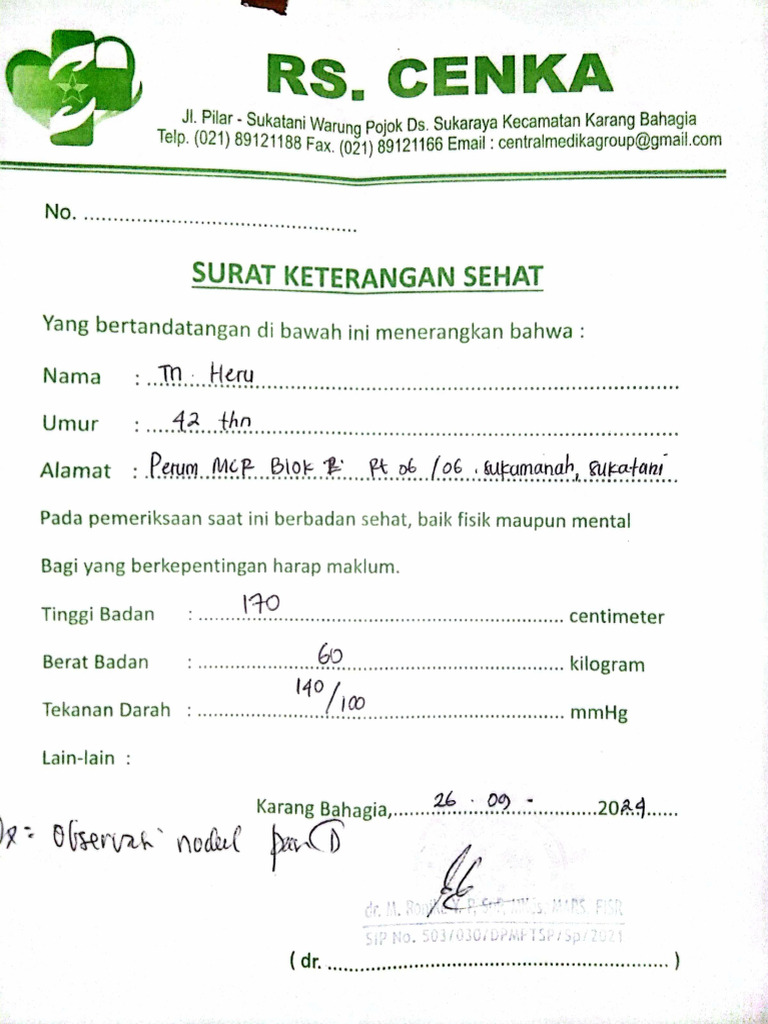 RS. CENKA
Jl. Pilar - Sukatani Warung Pojok Ds. Sukaraya Kecamatan Karang Bahagia
Telp. (021) 89121188 Fax. (021) 89121166 Email : centralmedikagroup@gmail.com
No. ................................................
SURAT KETERANGAN SEHAT
Yang bertandatangan di bawah ini menerangkan bahwa :
Nama : Tn. Heru
Umur : 42 thn
Alamat : Perum MCR Blok Rt 06 /06. sukamanah, sukatani
Pada pemeriksaan saat ini berbadan sehat, baik fisik maupun mental
Bagi yang berkepentingan harap maklum.
Tinggi Badan : 170 centimeter
Berat Badan : 60 kilogram
Tekanan Darah : 140/100 mmHg
Lain-lain :
Karang Bahagia, 26 . 09 - 2024
Dx = Observasi nodul
dr. M. MARS, FISR
SIP No. 503/030/DPMPTSP/Sp/2021
( dr. .......................................................... )